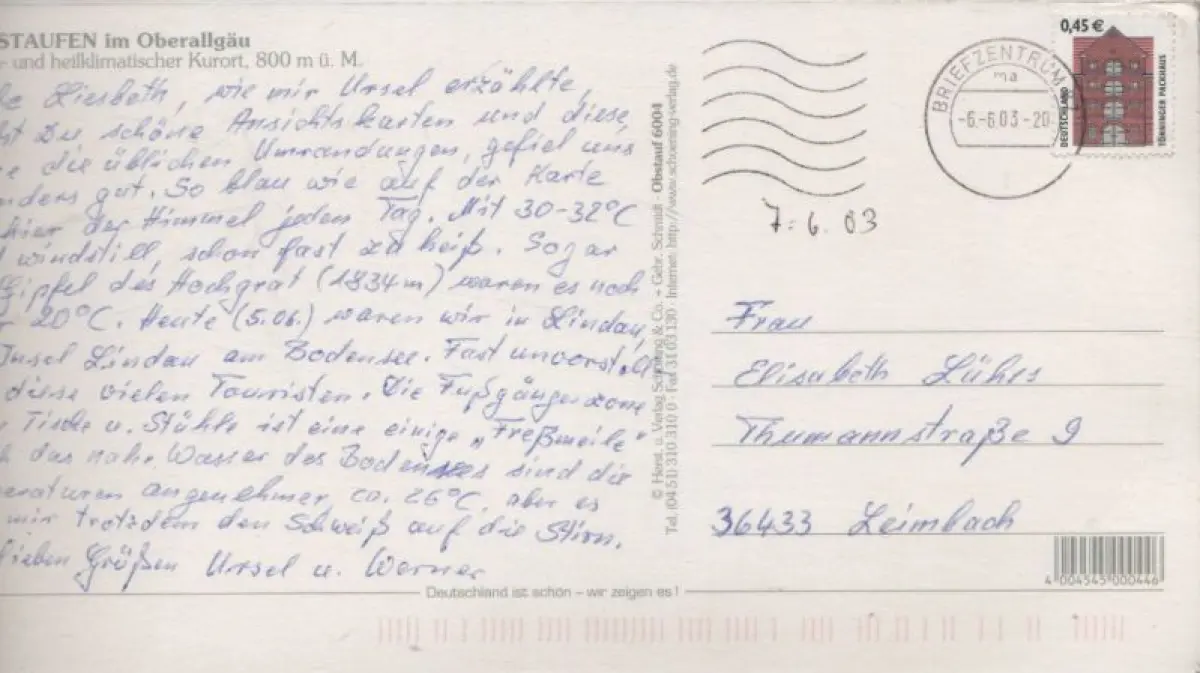 STAUFEN im Oberallgäu
- und heilklimatischer Kurort, 800 m ü. M.
Liesbeth, wie mir Ursel erzählte,
Du schöne Ansichtskarten und diese
die üblichen Umrandungen, gefiel uns
nders gut. So blau wie auf der Karte
hier der Himmel jeden Tag. Mit 30-32°C
windstill, schon fast zu heiß. Sogar
Gipfel des Hochgrat (1834m) waren es noch
20°C. Heute (5.06.) waren wir in Lindau,
Insel Lindau am Bodensee. Fast unvorst
diese vielen Touristen. Die Fußgängerzone
Tische u. Stühle ist eine einzige „Freßmeile"
das nahe Wasser des Bodensees sind die
eraturen angenehmer, ca. 26°C, aber es
mir trotzdem den Schweiß auf die Stirn.
lieben Grüßen Ursel u. Werner
Deutschland ist schön – wir zeigen es!
© Herst. u. Verlag Schöning & Co. + Gebr. Schmidt · Obstauf 6004
Tel. (0451) 310 310 0 · Fax 31 03 130 · Internet: http://www.schoening-verlag.de
BRIEFZENTRUM
-6.-6.03-20
0,45 €
DEUTSCHLAND
TÖNNINGER PACKHAUS
7.6.03
Frau
Elisabeth Lührs
Thumannstraße 9
36433 Leimbach
4 004545 000446